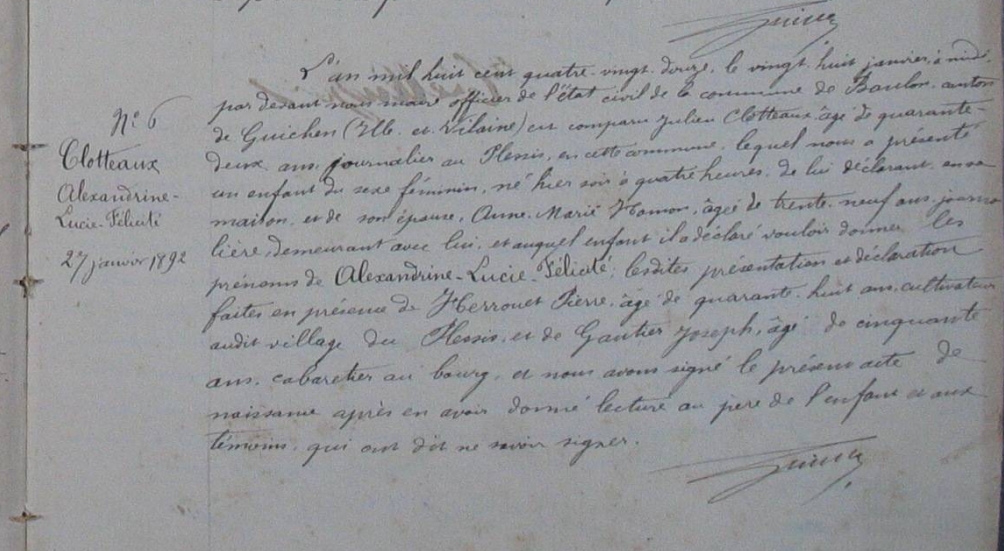 L'an mil huit cent quatre-vingt-douze, le vingt-huit janvier, à midi,
par devant nous maire officier de l'état civil de la commune de Baulon, canton
N° 6
de Guichen (Ille-et-Vilaine) est comparu Julien Clotteaux, âgé de quarante-
Clotteaux
deux ans, journalier au Plessis, en cette commune, lequel nous a présenté
Alexandrine-
un enfant du sexe féminin, né hier soir à quatre heures, de lui déclarant, en sa
Lucie-Félicité
maison, et de son épouse, Anne-Marie Hamon, âgée de trente-neuf ans, journa-
27 janvier 1892
lière, demeurant avec lui, et auquel enfant il a déclaré vouloir donner les
prénoms de Alexandrine-Lucie-Félicité; lesdites présentation et déclaration
faites en présence de Herrouet Pierre, âgé de quarante-huit ans, cultivateur
audit village du Plessis, et de Gautier Joseph, âgé de cinquante
ans, cabaretier au bourg, et nous avons signé le présent acte de
naissance après en avoir donné lecture au père de l'enfant et aux
témoins, qui ont dit ne savoir signer.